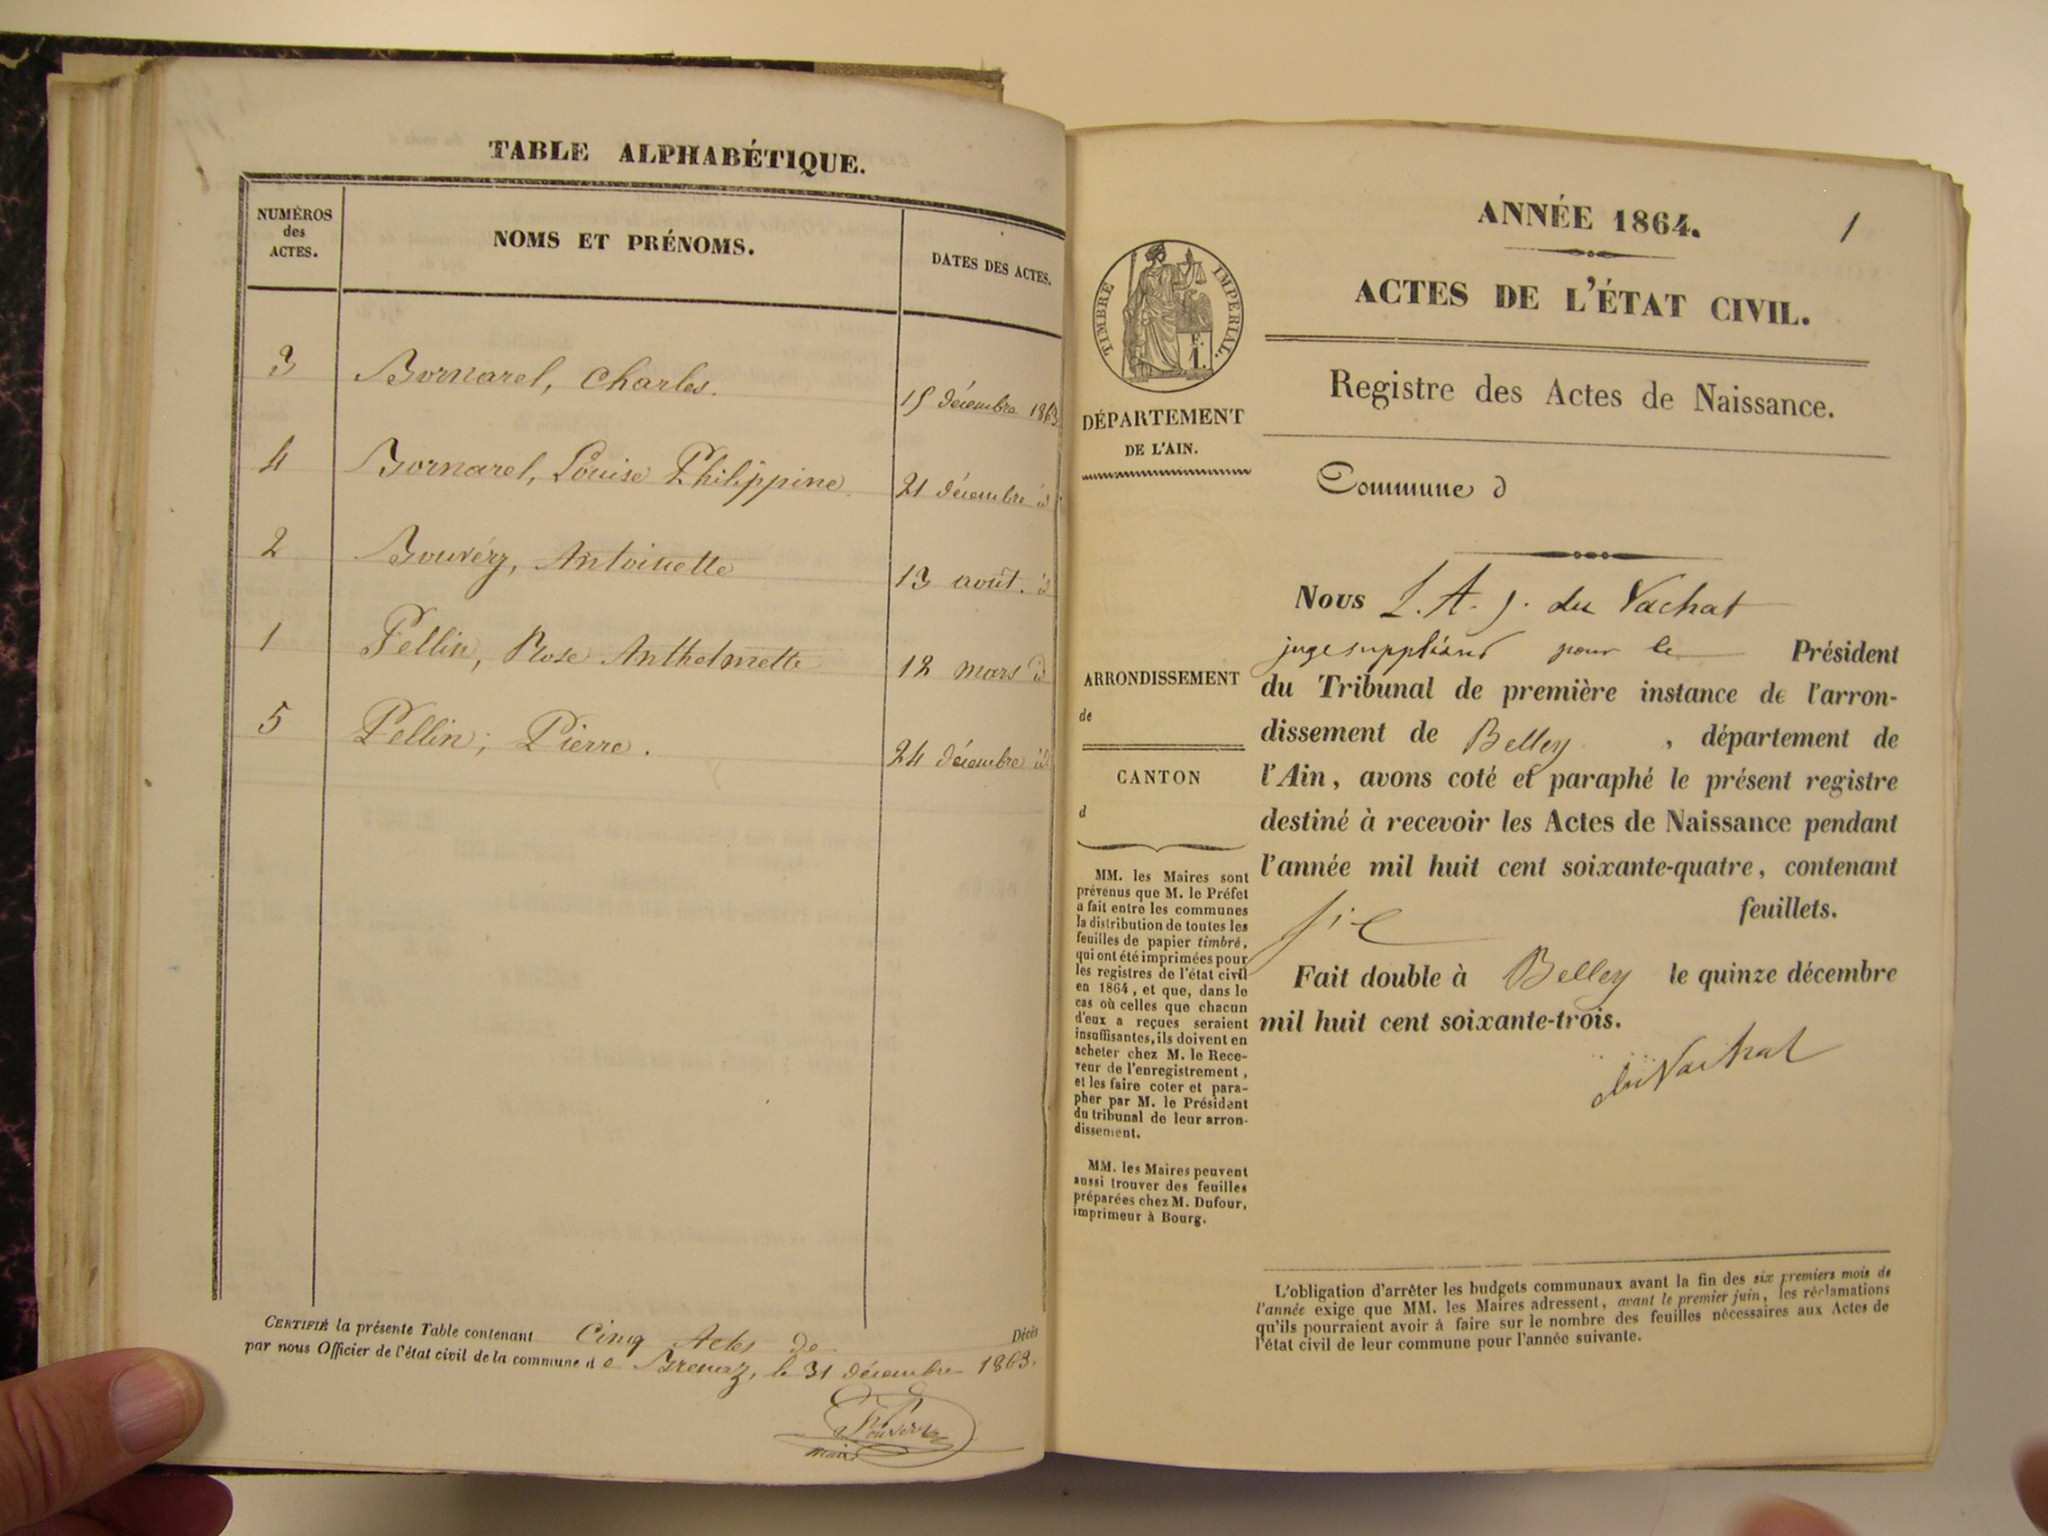 TABLE ALPHABÉTIQUE.
NUMÉROS
des
ACTES.
NOMS ET PRÉNOMS.
DATES DES ACTES.
3 Bornarel, Charles. 15 décembre 1863
4 Bornarel, Louise Philippine 21 décembre id
2 Bouvéry, Antoinette 13 août. id
1 Pellin, Rose Anthelmette 12 mars id
5 Pellin, Pierre. 24 décembre id
CERTIFIÉ la présente Table contenant Cinq Actes de Décès
par nous Officier de l'état civil de la commune de le 31 décembre 1863.
maire
ANNÉE 1864.
1
ACTES DE L'ÉTAT CIVIL.
Registre des Actes de Naissance.
TIMBRE IMPÉRIAL.
F.
1.
DÉPARTEMENT
DE L'AIN.
Commune d
ARRONDISSEMENT
de
CANTON
d
MM. les Maires sont
prévenus que M. le Préfet
a fait entre les communes
la distribution de toutes les
feuilles de papier timbré,
qui ont été imprimées pour
les registres de l'état civil
en 1864, et que, dans le
cas où celles que chacun
d'eux a reçues seraient
insuffisantes, ils doivent en
acheter chez M. le Rece-
veur de l'enregistrement,
et les faire coter et para-
pher par M. le Président
du tribunal de leur arron-
dissement.
MM. les Maires peuvent
aussi trouver des feuilles
préparées chez M. Dufour,
imprimeur à Bourg.
Nous L. A. J. du Vachat
juge suppléant pour le Président
du Tribunal de première instance de l'arron-
dissement de Belley , département de
l'Ain, avons coté et paraphé le présent registre
destiné à recevoir les Actes de Naissance pendant
l'année mil huit cent soixante-quatre, contenant
six feuillets.
Fait double à Belley le quinze décembre
mil huit cent soixante-trois.
du Vachat
L'obligation d'arrêter les budgets communaux avant la fin des six premiers mois de
l'année exige que MM. les Maires adressent, avant le premier juin, les réclamations
qu'ils pourraient avoir à faire sur le nombre des feuilles nécessaires aux Actes de
l'état civil de leur commune pour l'année suivante.